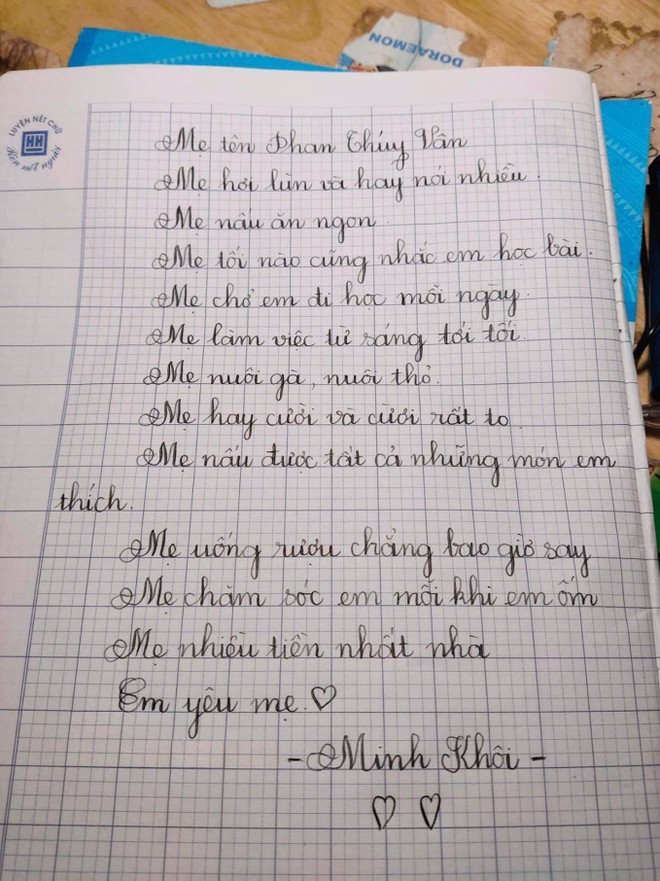 DORAEMON
LUYỆN NÉT CHỮ
HH
Rèn nết người
Mẹ tên Phan Thúy Vân
Mẹ hơi lùn và hay nói nhiều.
Mẹ nấu ăn ngon.
Mẹ tối nào cũng nhắc em học bài.
Mẹ chở em đi học mỗi ngày.
Mẹ làm việc từ sáng tới tối.
Mẹ nuôi gà, nuôi thỏ.
Mẹ hay cười và cười rất to.
Mẹ nấu được tất cả những món em
thích.
Mẹ uống rượu chẳng bao giờ say
Mẹ chăm sóc em mỗi khi em ốm
Mẹ nhiều tiền nhất nhà
Em yêu mẹ. ♡
- Minh Khôi -
♡ ♡